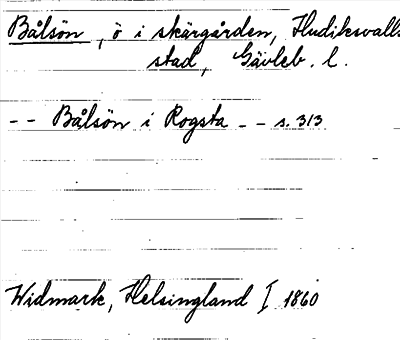 Bålsön, ö i skärgården, Hudiksvalls
stad, Gävleb. l.
-- Bålsön i Rogsta -- s. 313
Widmark, Helsingland I 1860